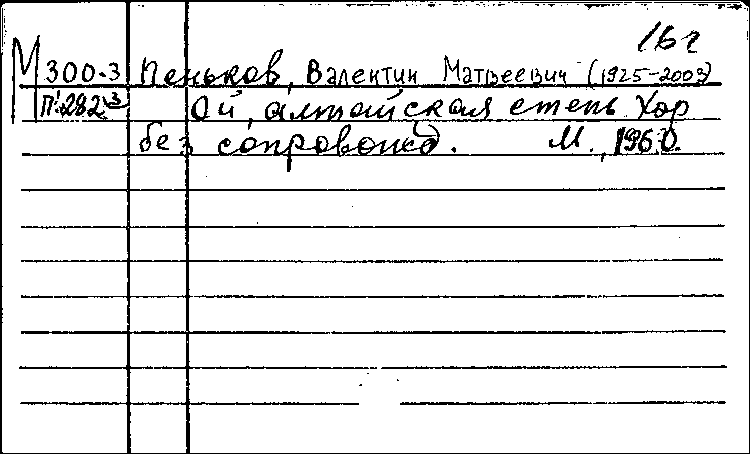 16г
М 300-3 Пеньков, Валентин Матвеевич (1925-2003)
П 282 Ой, алтайская степь Хор
без сопровожд. М., 1960.